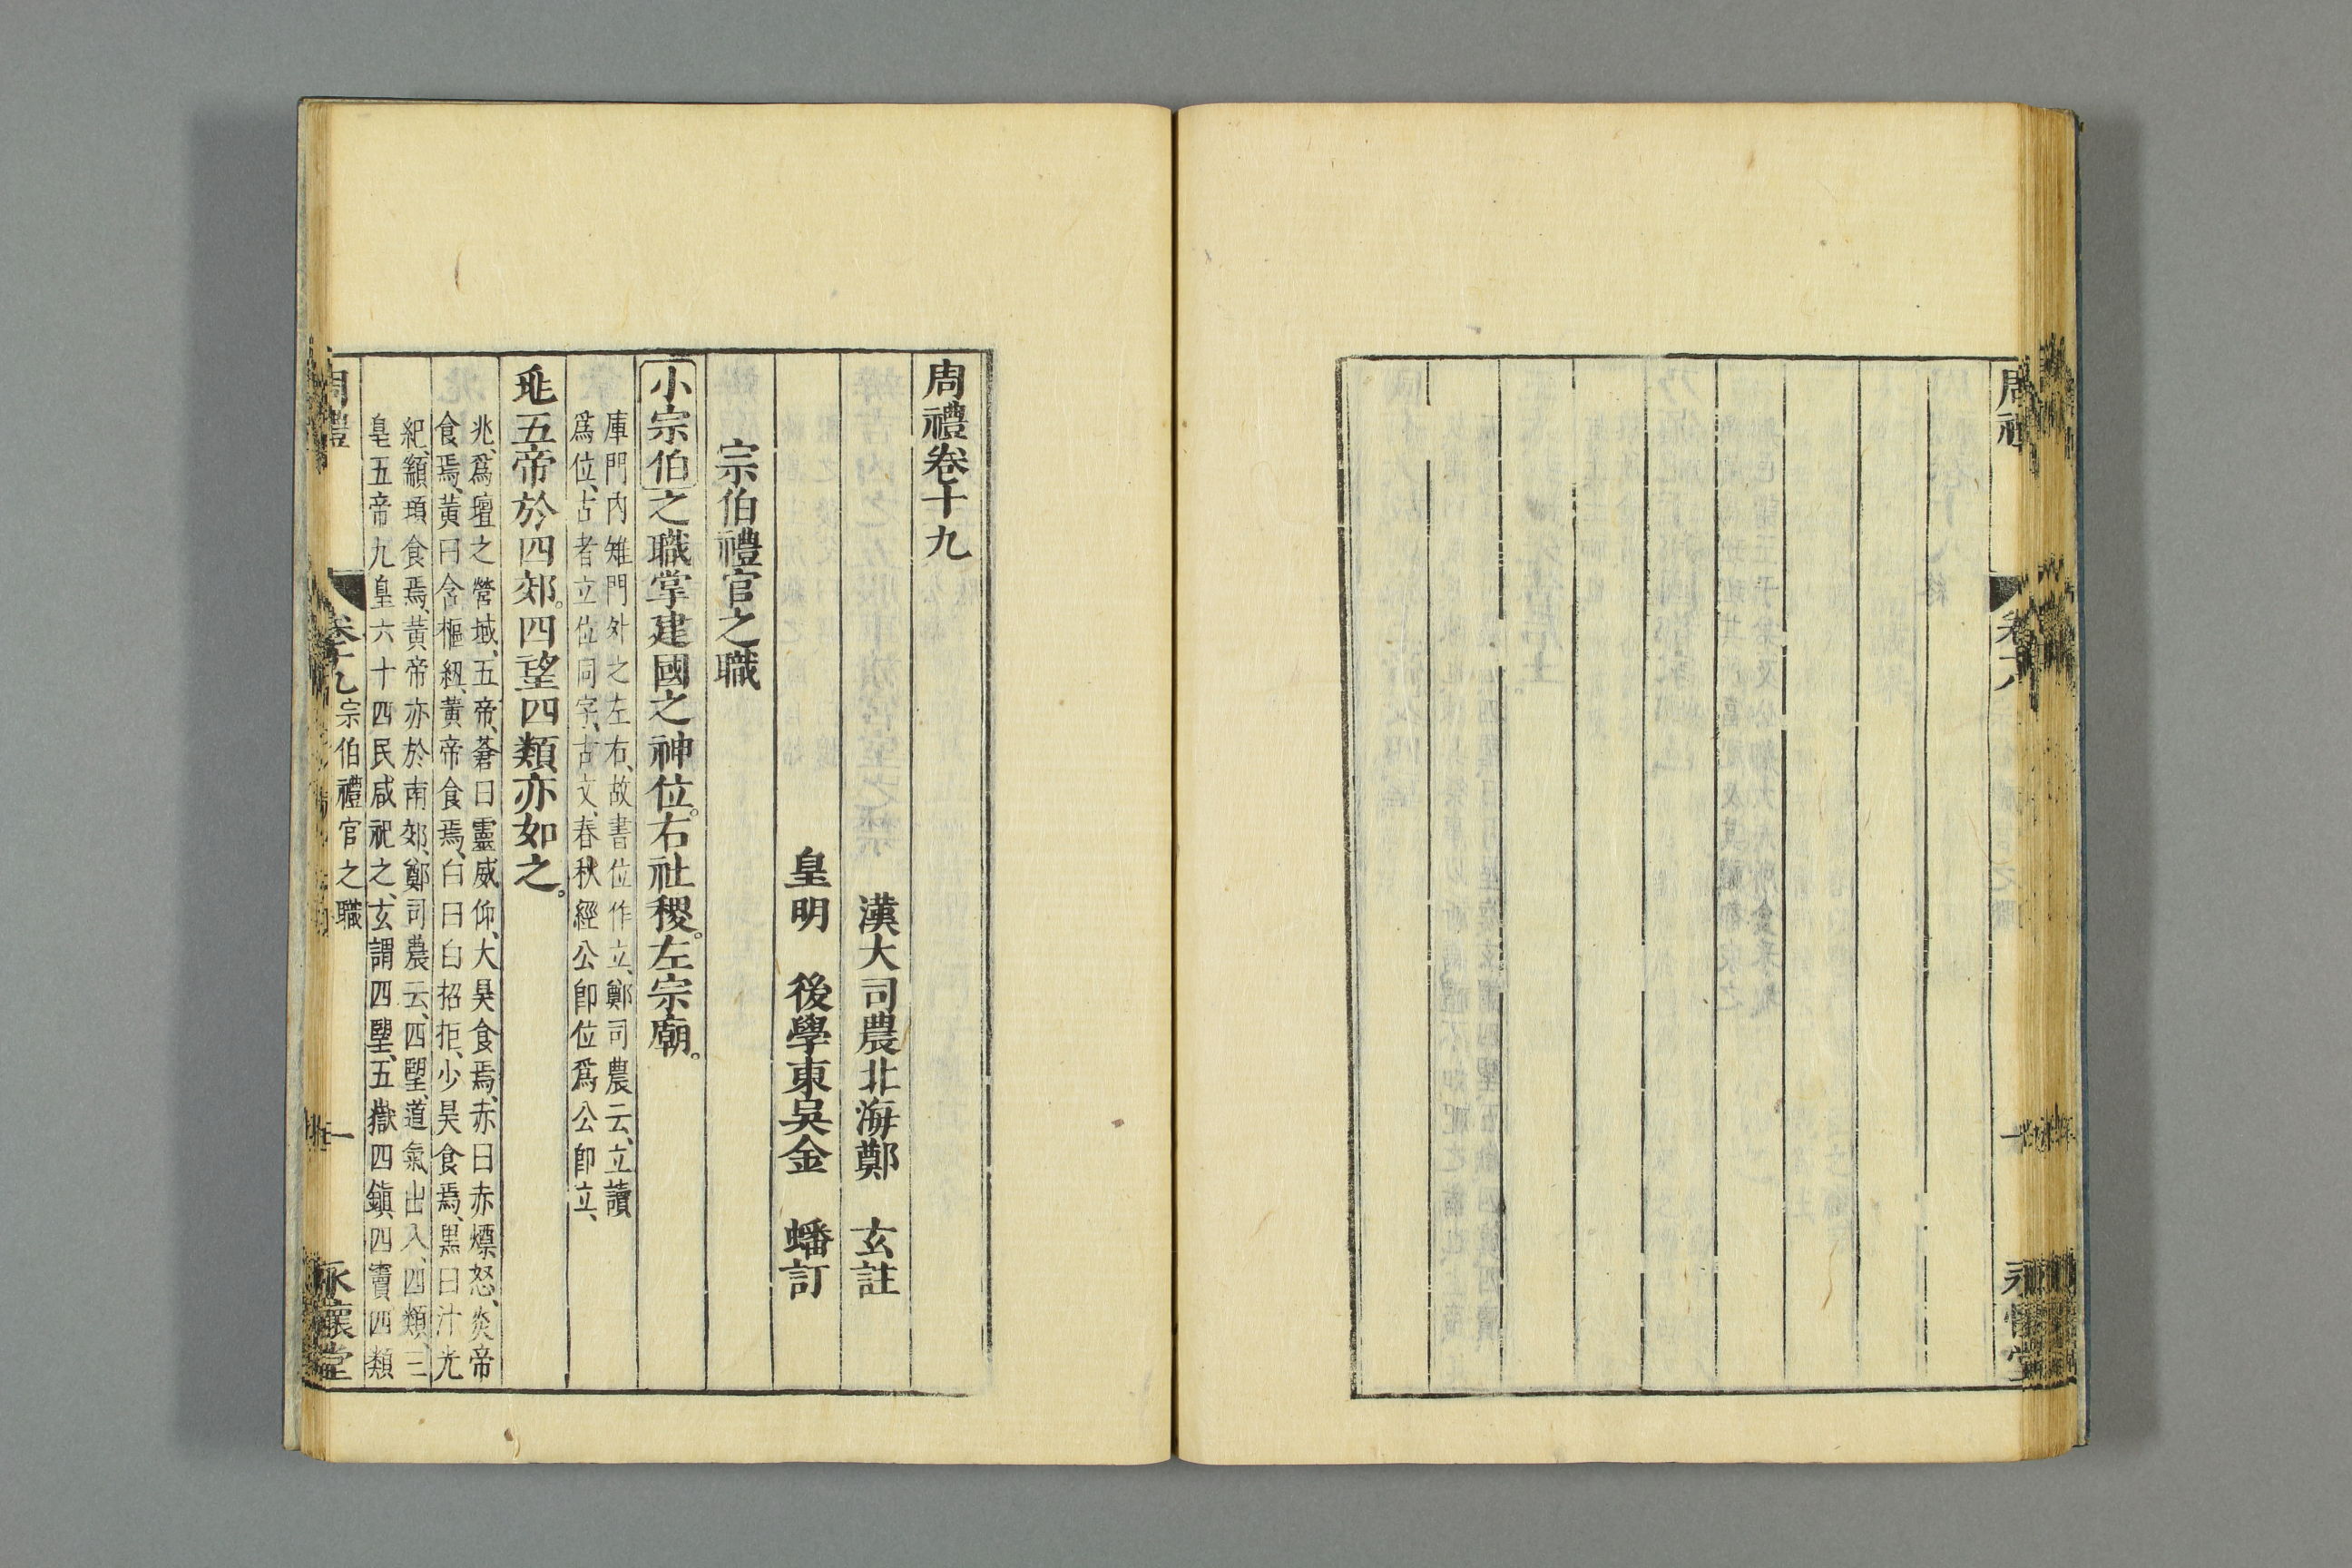 周禮
永懷堂
周禮卷十九
漢大司農北海鄭　玄註
皇明　後學東吳金　蟠訂
宗伯禮官之職
小宗伯之職掌建國之神位。右社稷。左宗廟。
庫門內雉門外之左右、故書位作立、鄭司農云、立讀
爲位、古者立位同字、古文、春秋經公卽位爲公卽立、
兆五帝於四郊。四望四類亦如之。
兆、爲壇之營域、五帝、蒼曰靈威仰、大昊食焉、赤曰赤熛怒、炎帝
食焉、黃曰含樞紐、黃帝食焉、白曰白招拒、少昊食焉、黑曰汁光
紀、顓頊食焉、黃帝亦於南郊、鄭司農云、四朢、道氣出入、四類、三
皇五帝九皇六十四民咸祀之、玄謂四朢、五嶽四鎭四瀆、四類
周禮
卷十九
宗伯禮官之職
一
永懷堂